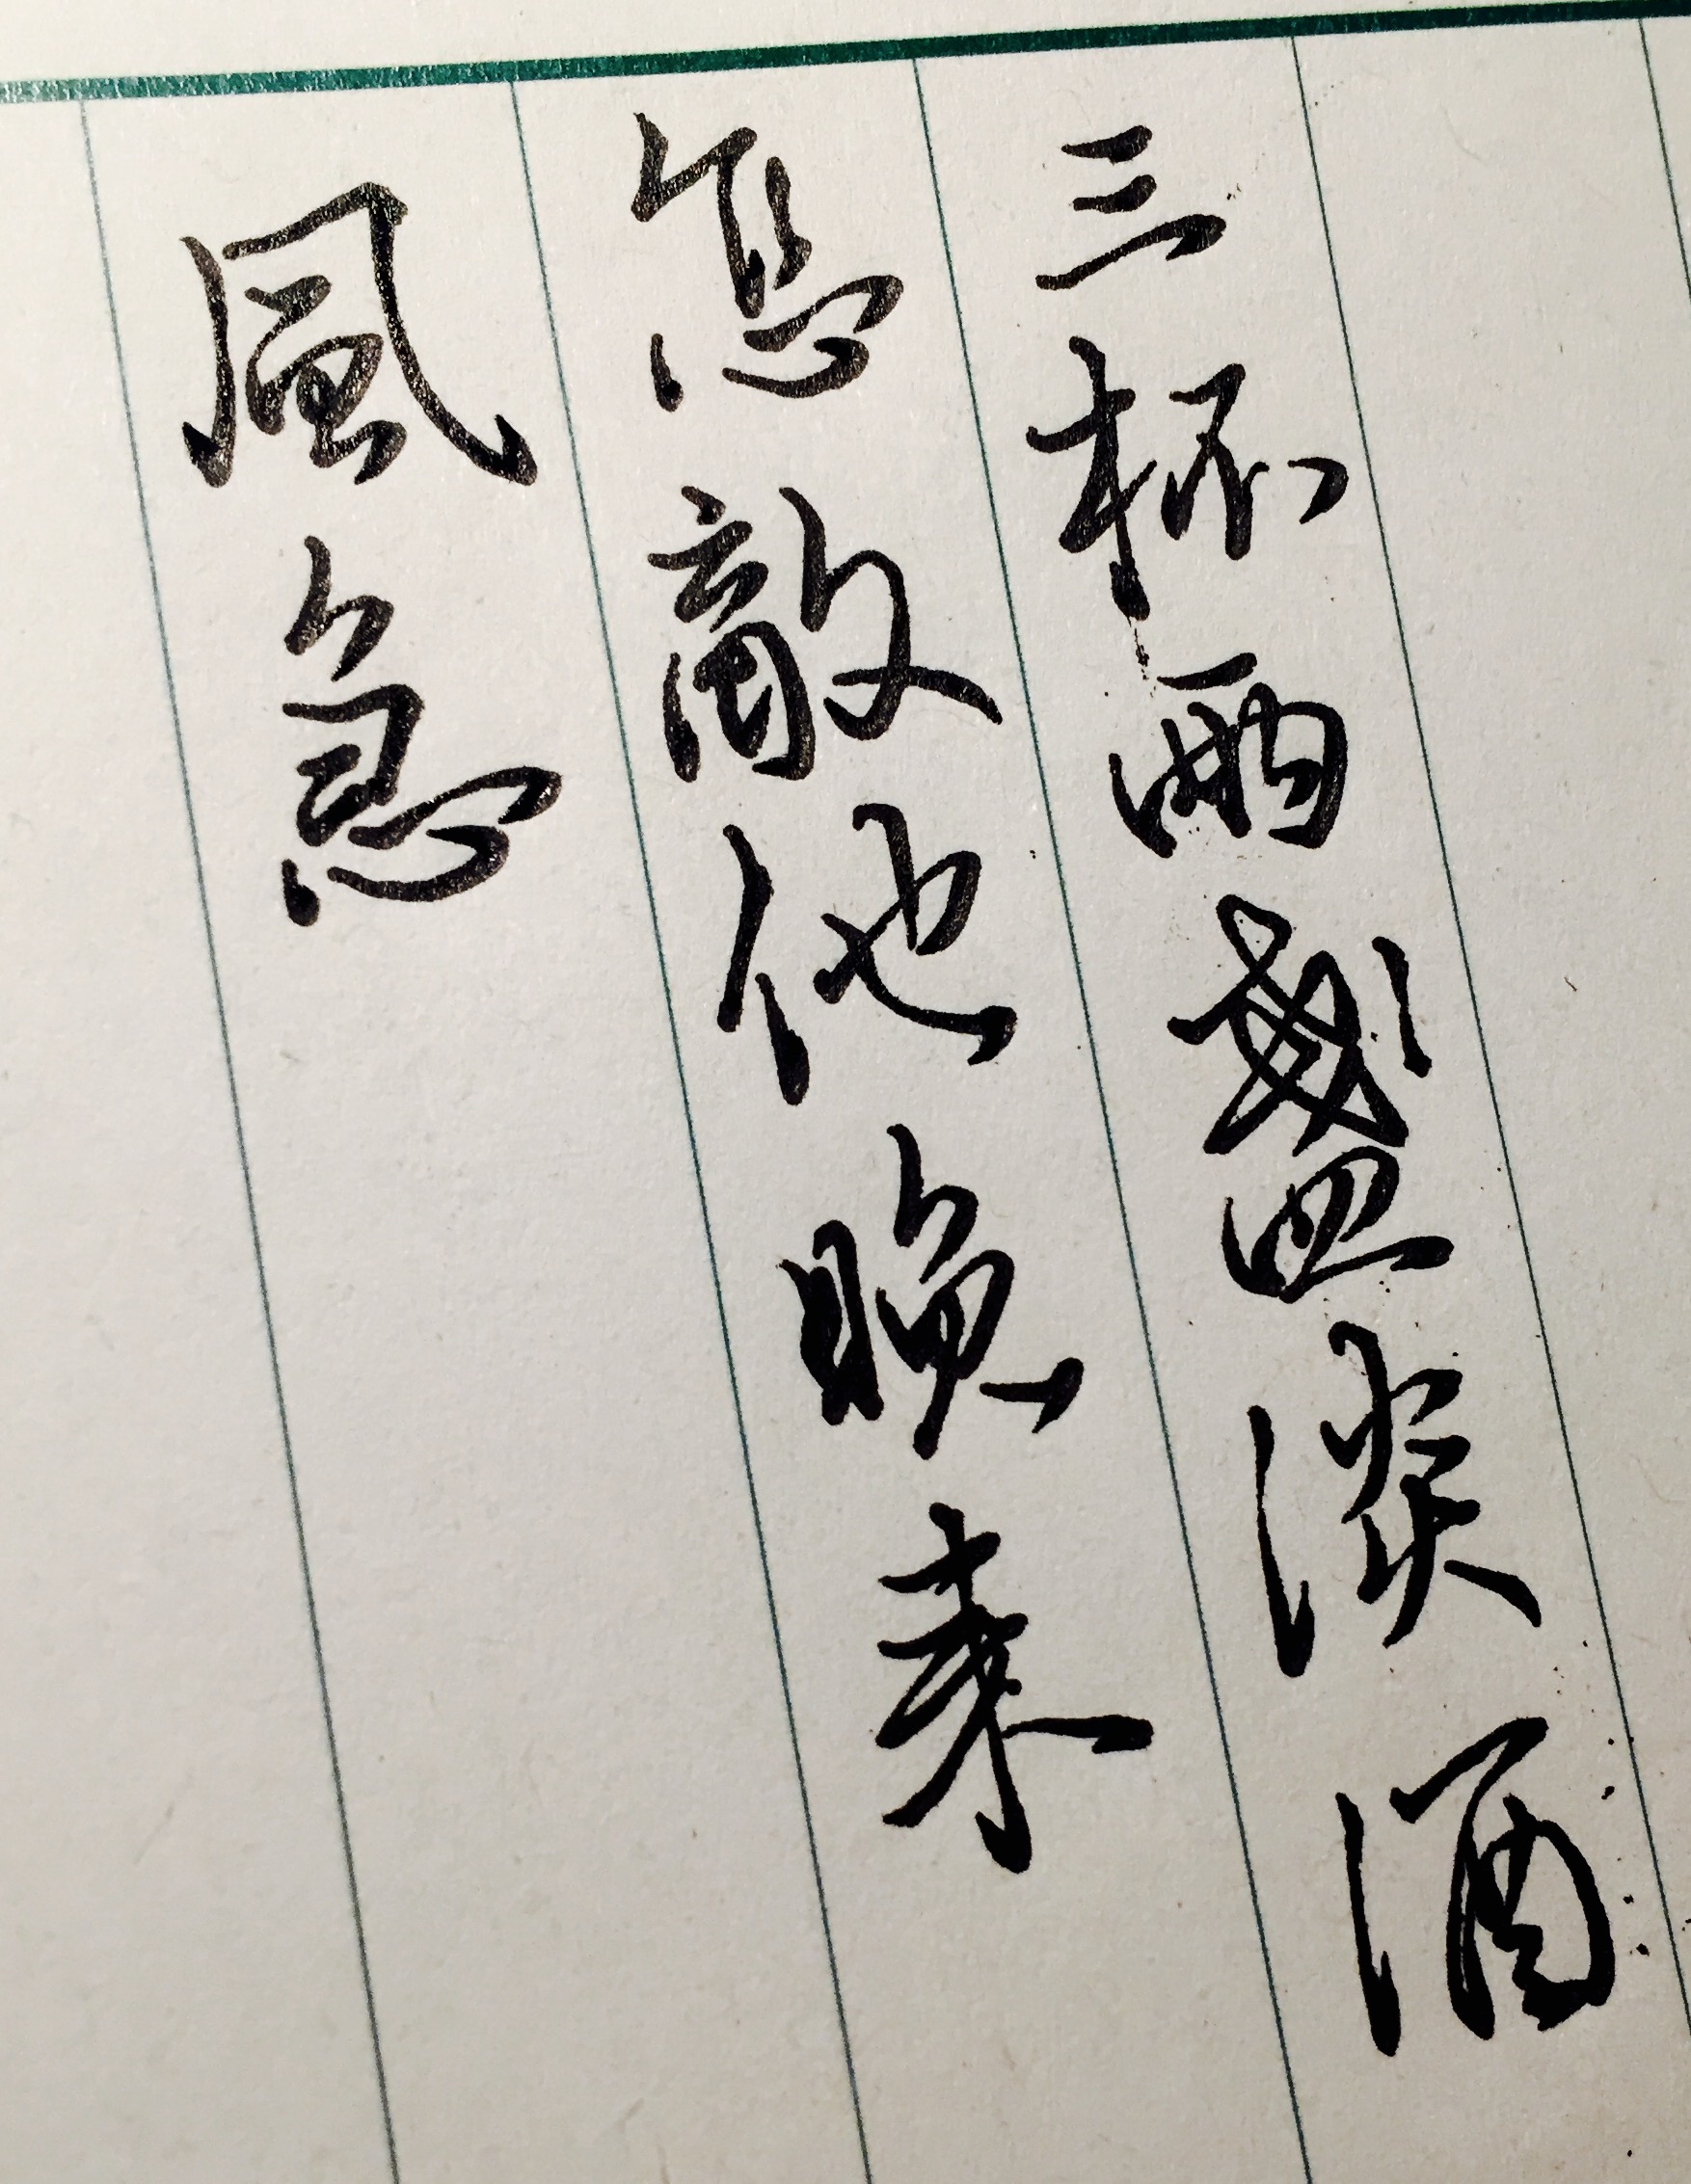 三杯兩盞淡酒
怎敵他晚来
風急